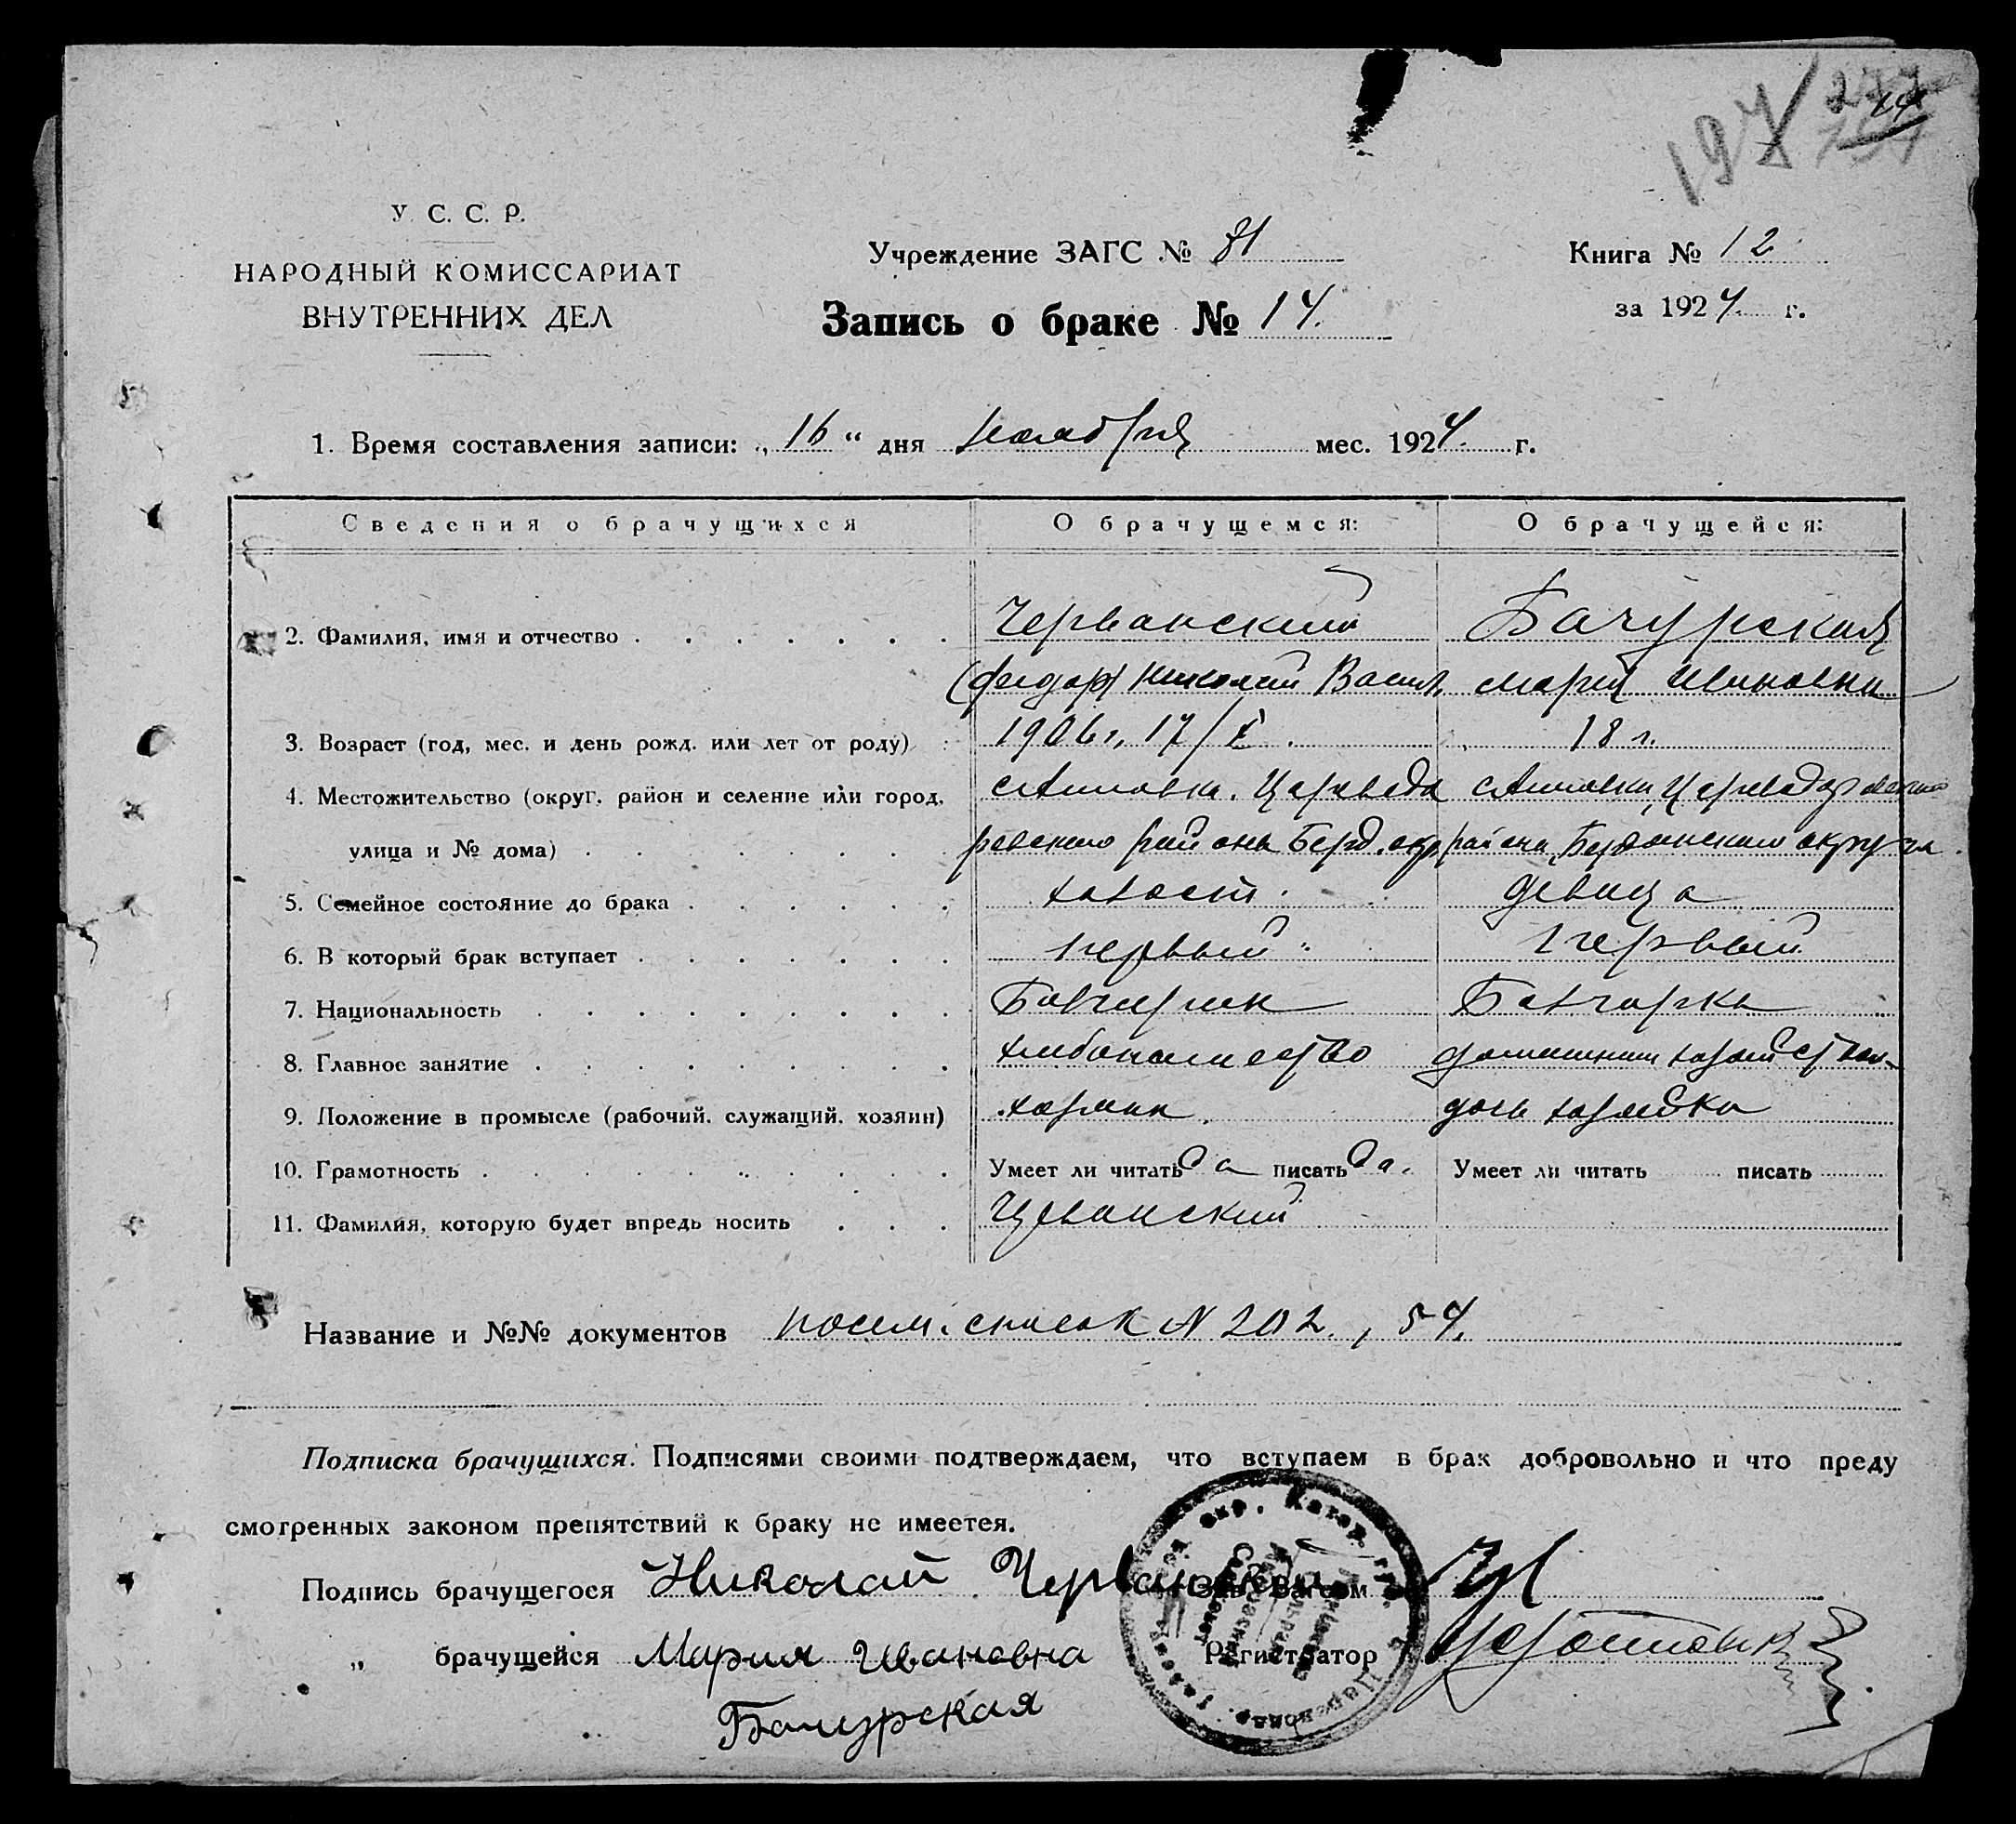 197/
У. С. С. Р.
НАРОДНЫЙ КОМИССАРИАТ
ВНУТРЕННИХ ДЕЛ
Учреждение ЗАГС № 81
Запись о браке № 14.
Книга № 12
за 1924 г.
1. Время составления записи: „ 16 “ дня ноября мес. 1924 г.
Сведения о брачущихся О брачущемся: О брачущейся:
2. Фамилия, имя и отчество Черванский Бачурская
(Федор) Николай Васил. Мария Ивановна
3. Возраст (год, мес. и день рожд. или лет от роду) 1906 г. 17/X 18 л.
4. Местожительство (округ. район и селение или город. с Анновка. Царевода с Анновки, Цареводаровского
улица и № дома) ровского района Берд. окр. района, Бердянского округа
5. Семейное состояние до брака холост девица
6. В который брак вступает первый первый
7. Национальность Болгарин Болгарка
8. Главное занятие хлебопашество домашним хозяйством
9. Положение в промысле (рабочий. служащий. хозяин) хозяин дочь хозяйка
10. Грамотность Умеет ли читать да писать да. Умеет ли читать писать
11. Фамилия, которую будет впредь носить Черванский
Название и №№ документов посем. список N 202, 54.
Подписка брачущихся. Подписями своими подтверждаем, что вступаем в брак добровольно и что преду
смотренных законом препятствий к браку не имеется.
Подпись брачущегося Николай Черванский Зав. Загсом
„ брачущейся Мария Ивановна Регистратор
Бачурская